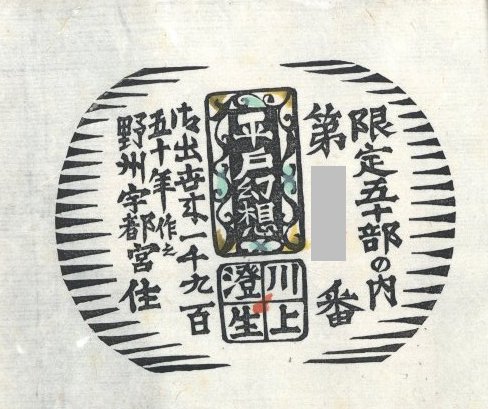 限定五十部の内
第
番
平戸幻想
川上
澄生
御出世以来一千九百
五十年作之
野州宇都宮住